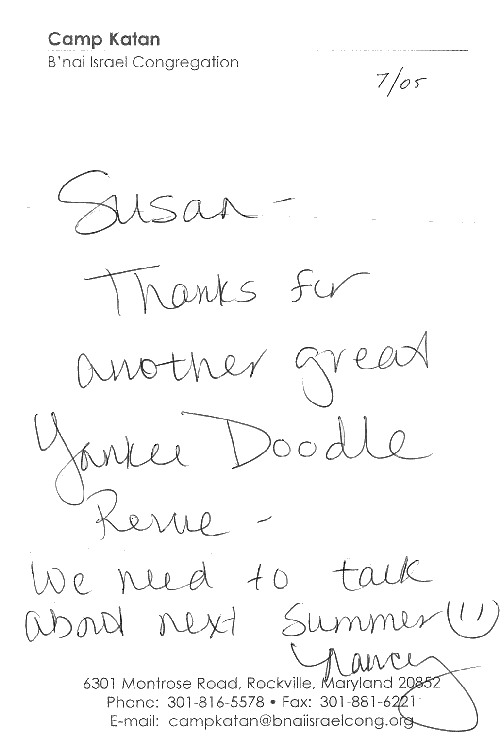 Camp Katan
B'nai Israel Congregation
7/05
Susan -
Thanks for
another great
Yankee Doodle
Revue -
We need to talk
about next summer (!!)
Nancy
6301 Montrose Road, Rockville, Maryland 20852
Phone: 301-816-5578 • Fax: 301-881-6221
E-mail: campkatan@bnaiisraelcong.org